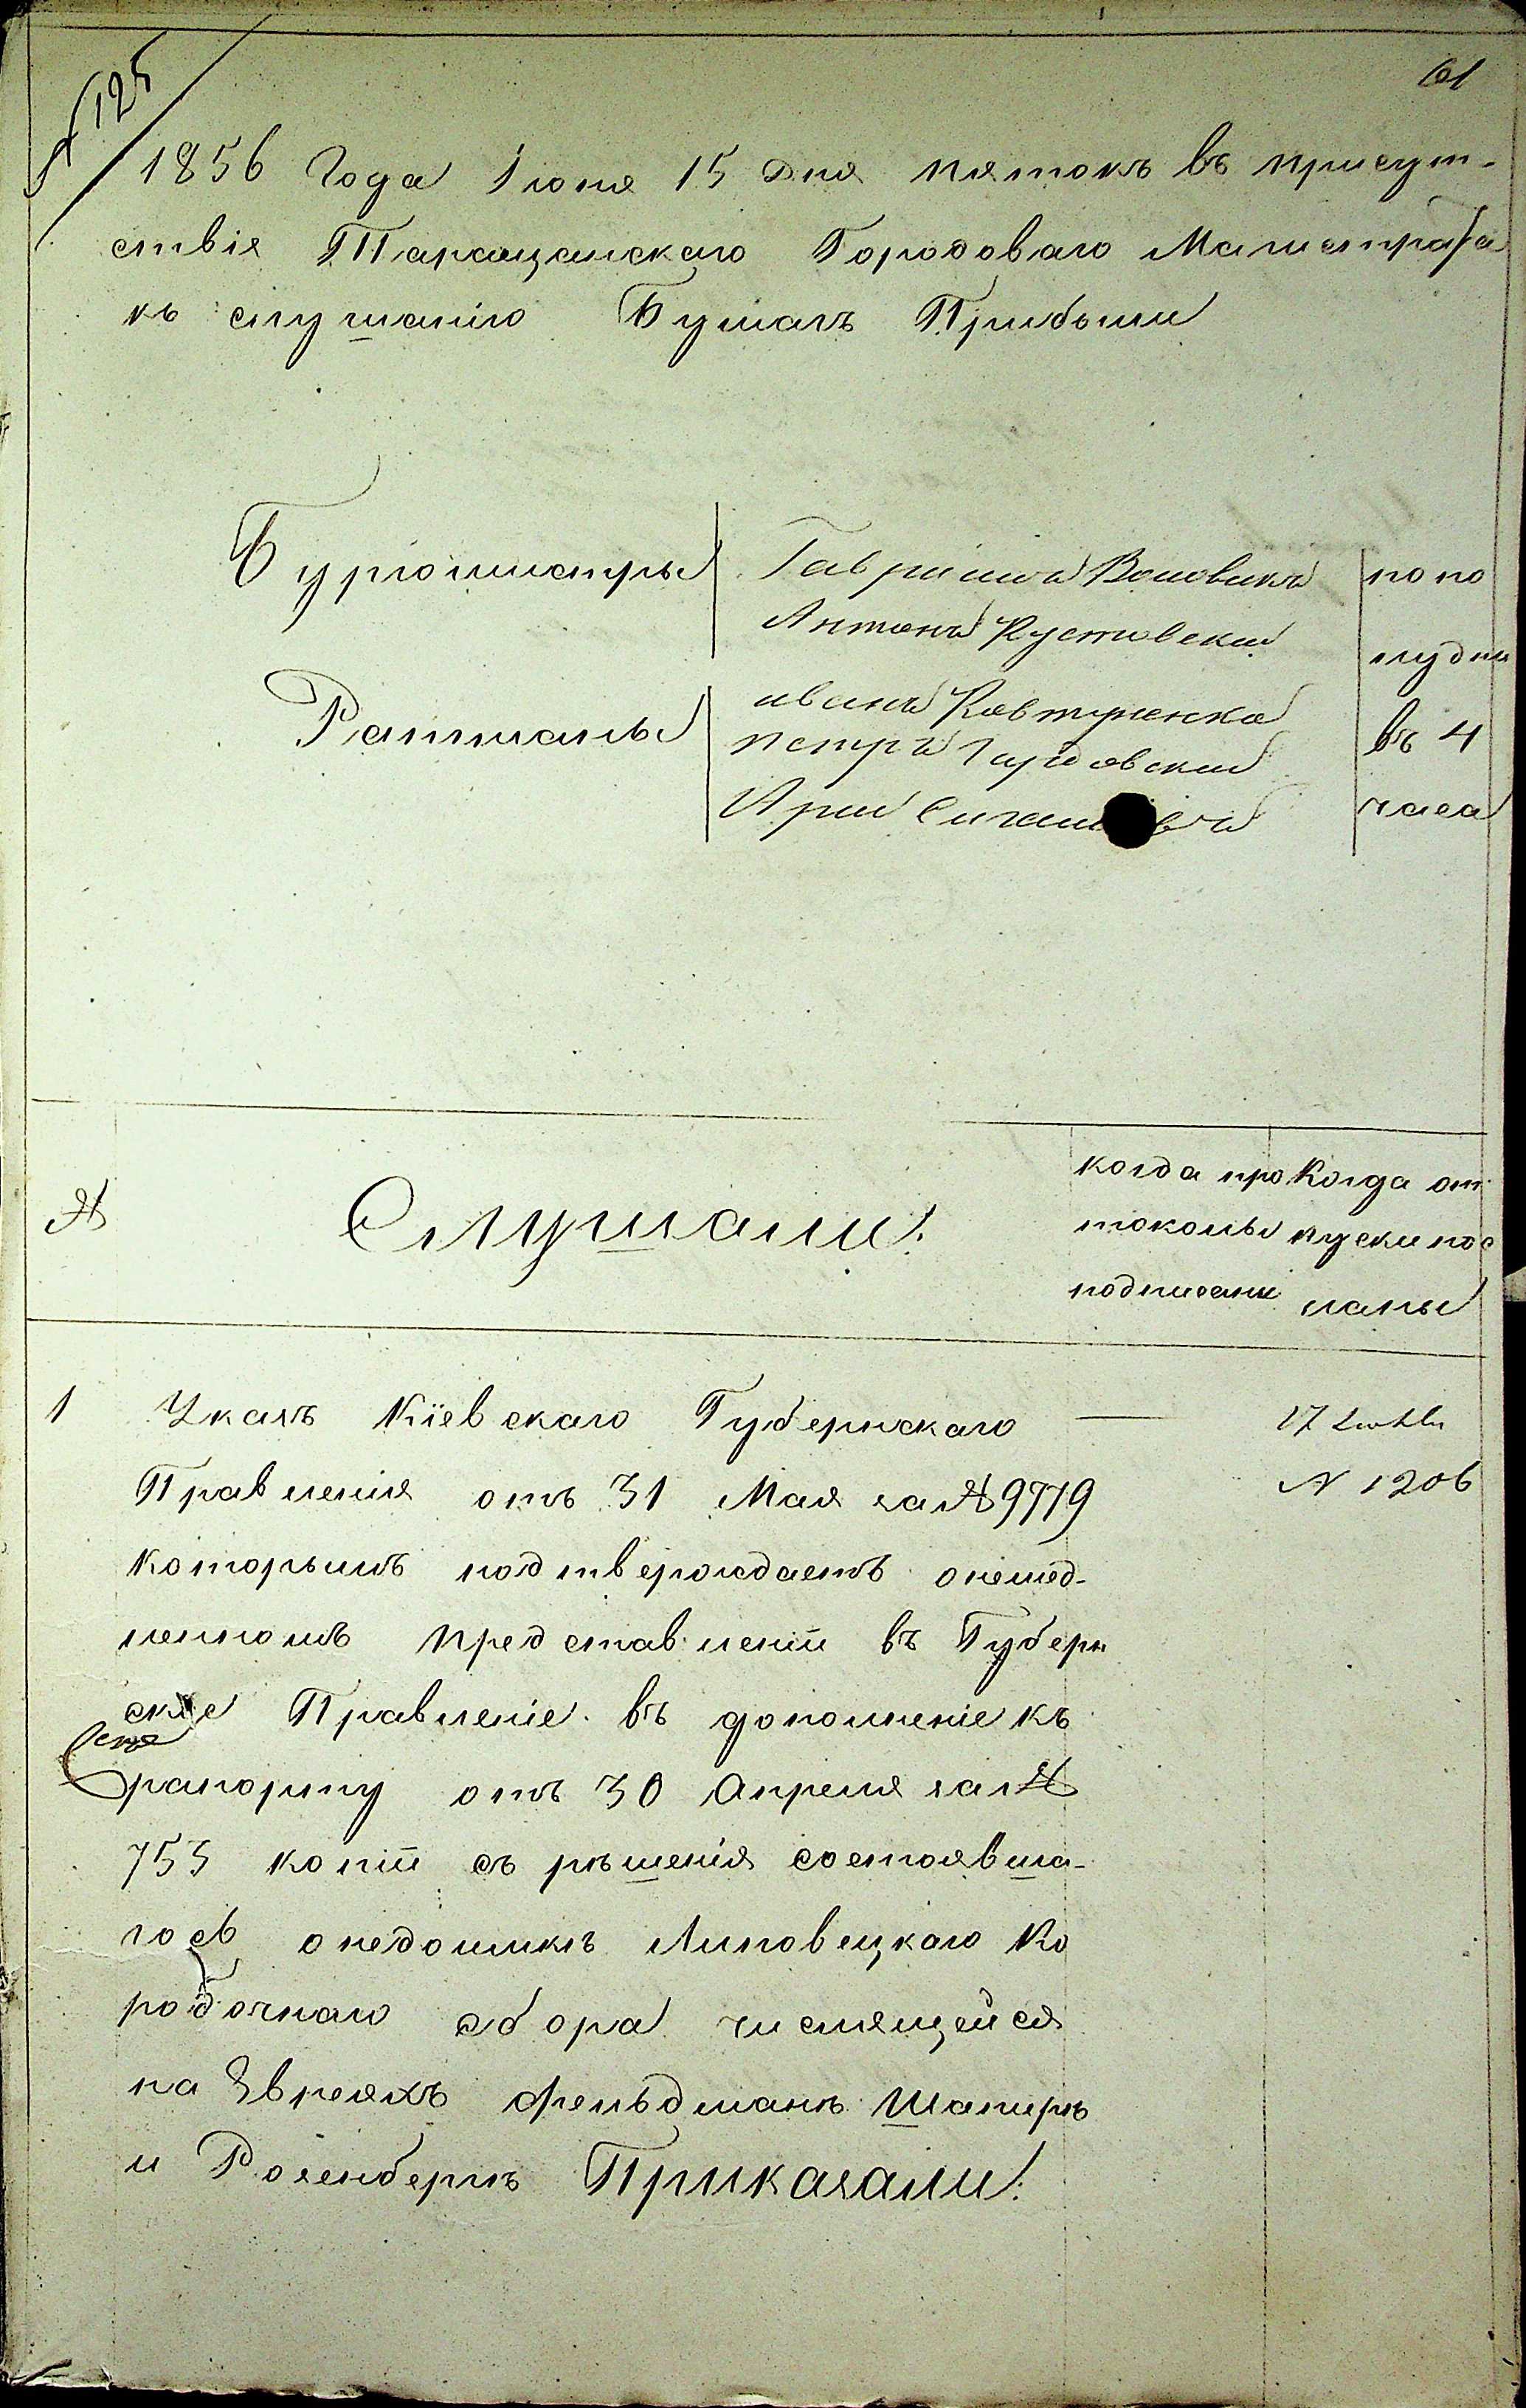 61
№ 125
1856 Года Июня 15 дня пятокъ въ присут-
ствія Таращанскаго Городоваго Магистрата
къ слушанію Бумагъ Прибыли
Бургомистры
Гавріилъ Воловикъ
Антонъ Кустовский
Ратманы
иванъ Ковтуненко
петръ Гардовский
по по
лудни
въ 4
часа
№
Слушали:
когда про
токолы
подписаны
Когда от
пуски пос
ланы
1 Указъ Кіевскаго Губернскаго
Правленія отъ 31 Мая за № 9779
которымъ подтверождаетъ онемед-
ленномъ представленіи въ Губерн
ское Правленіе въ дополненіе къ
рапорту отъ 30 Апреля за №
753 копіи съ ръшенія состоявша-
гось онедоимкъ Липовецкаго Ко
робочнаго сбора числящейся
на Эвреяхъ Фельдманъ Шапиръ
и Розенбергъ Приказали:
17 Июня
N 1206